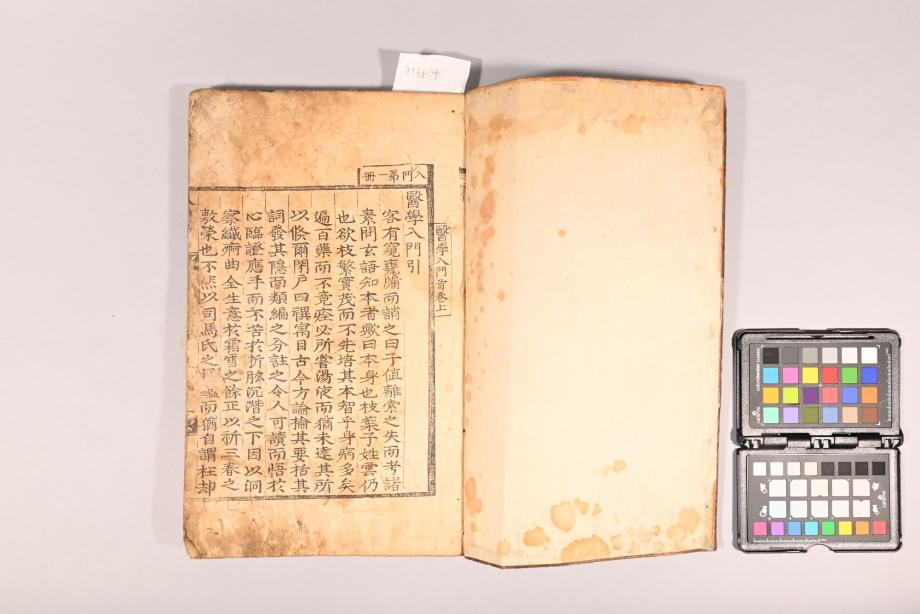 入門第一冊
醫學入門首卷上
醫學入門引
客有窺甕牖而誚之曰子值離索之失而考諸
素問玄語知本者歟曰本身也枝葉子姓雲仍
也欲枝繁實茂而不先培其本智乎身病多矣
遍百藥而不竟痊必所嘗湯液而猶未達其所
以倏爾閉戶四禩寓目古今方論掄其要括其
詞發其隱而類編之分註之令人可讀而悟於
心臨證應手而不苦於折肱沉潛之下因以洞
察纖痾曲全生意於霜雪之餘正以祈三春之
敷榮也不然以司馬氏之 而猶自謂枉却